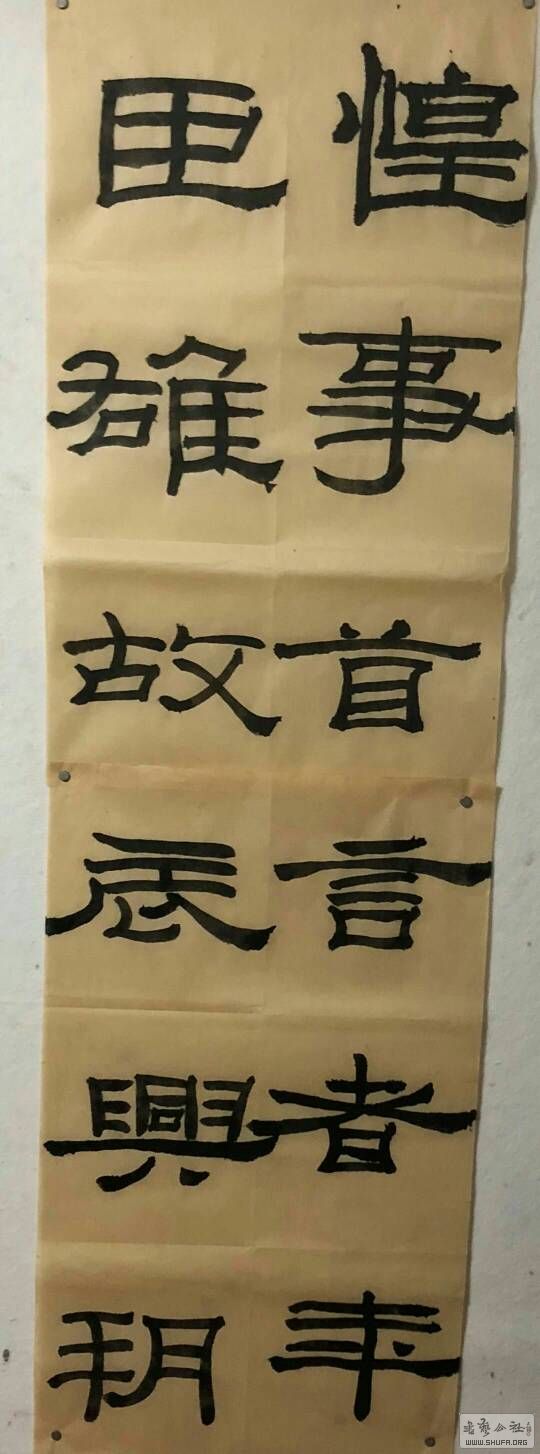 惶事首言者年
臣雄故辰興
書藝公社
WWW.SHUFA.ORG